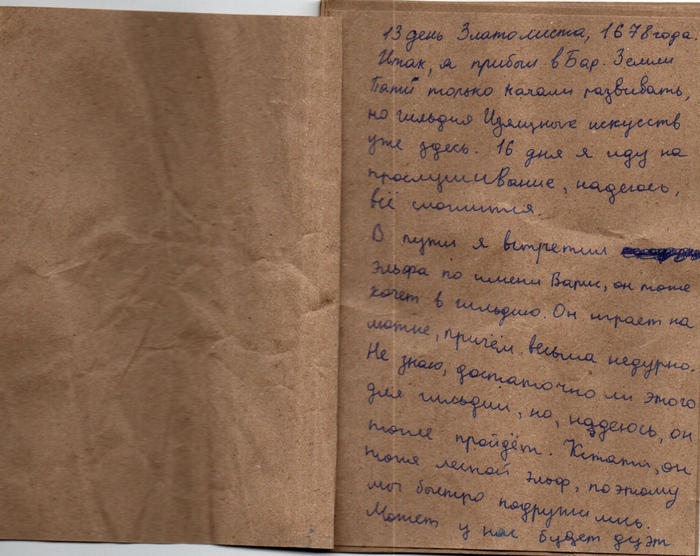 13 день Златолиста, 1678 года.
Итак, я прибыл в Бар. Земли
только начали развивать,
но гильдия Изящных искусств
уже здесь. 16 дня я иду на
прослушивание, надеюсь,
всё сложится.
В пути я встретил
эльфа по имени Варис, он тоже
хочет в гильдию. Он играет на
лютне, причём весьма недурно.
Не знаю, достаточно ли этого
для гильдии, но, надеюсь, он
тоже пройдёт. Кстати, он
тоже лесной эльф, поэтому
мы быстро подружились.
Может у нас будет дуэт.